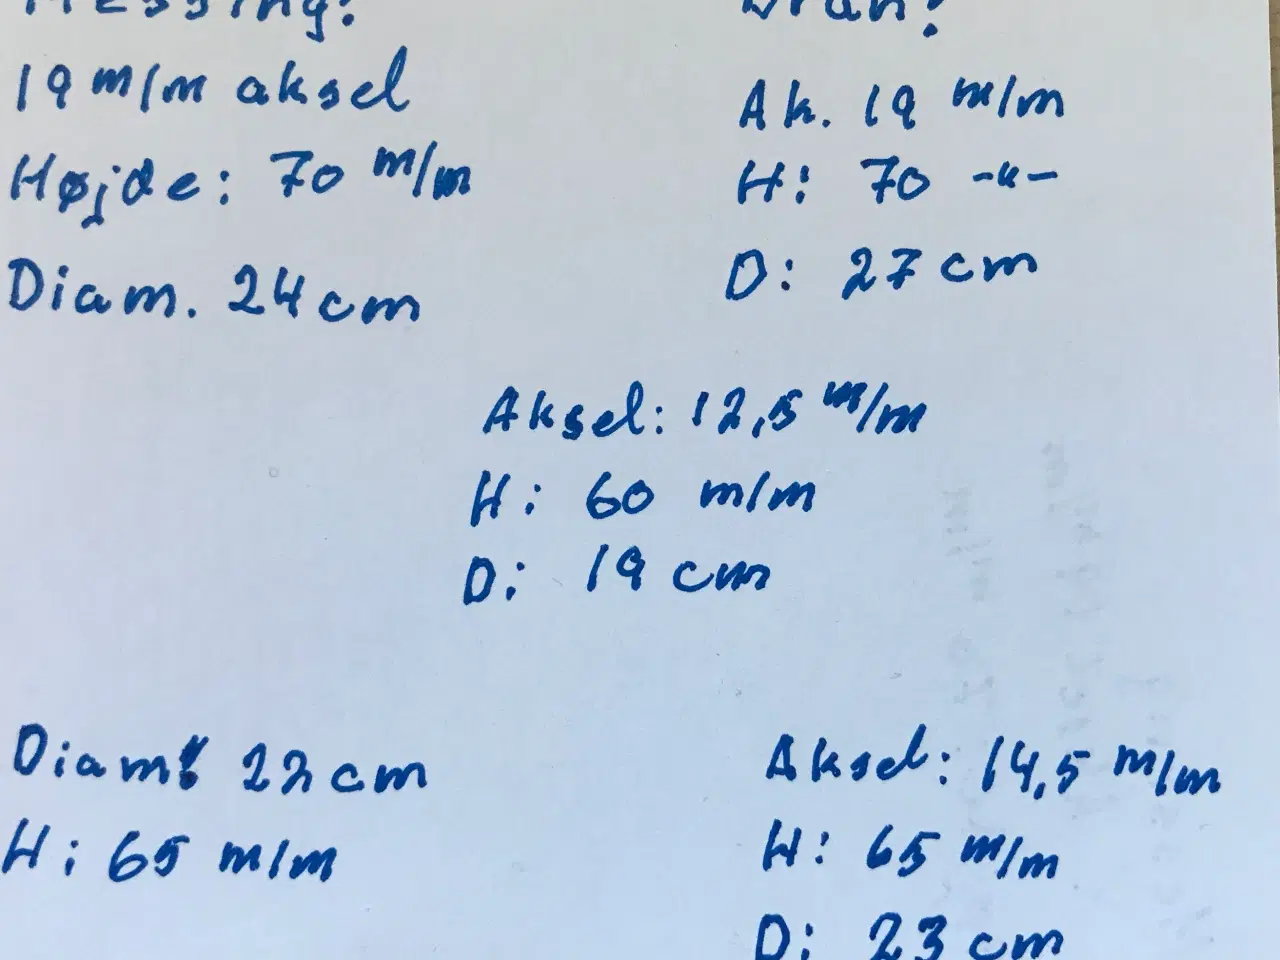 Messing:
19 m/m aksel
Højde: 70 m/m
Diam. 24 cm
Ak. 19 m/m
H: 70 -"-
D: 27 cm
Aksel: 12,5 m/m
H: 60 m/m
D: 19 cm
Diam: 22 cm
H: 65 m/m
Aksel: 14,5 m/m
H: 65 m/m
D: 23 cm